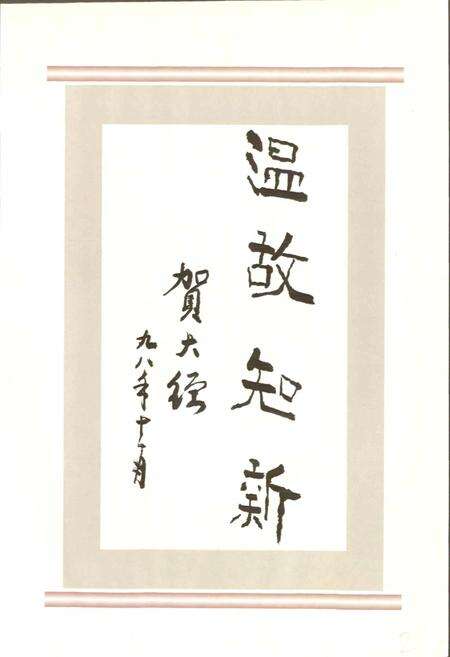 温故知新
贺大经
九八年十一月